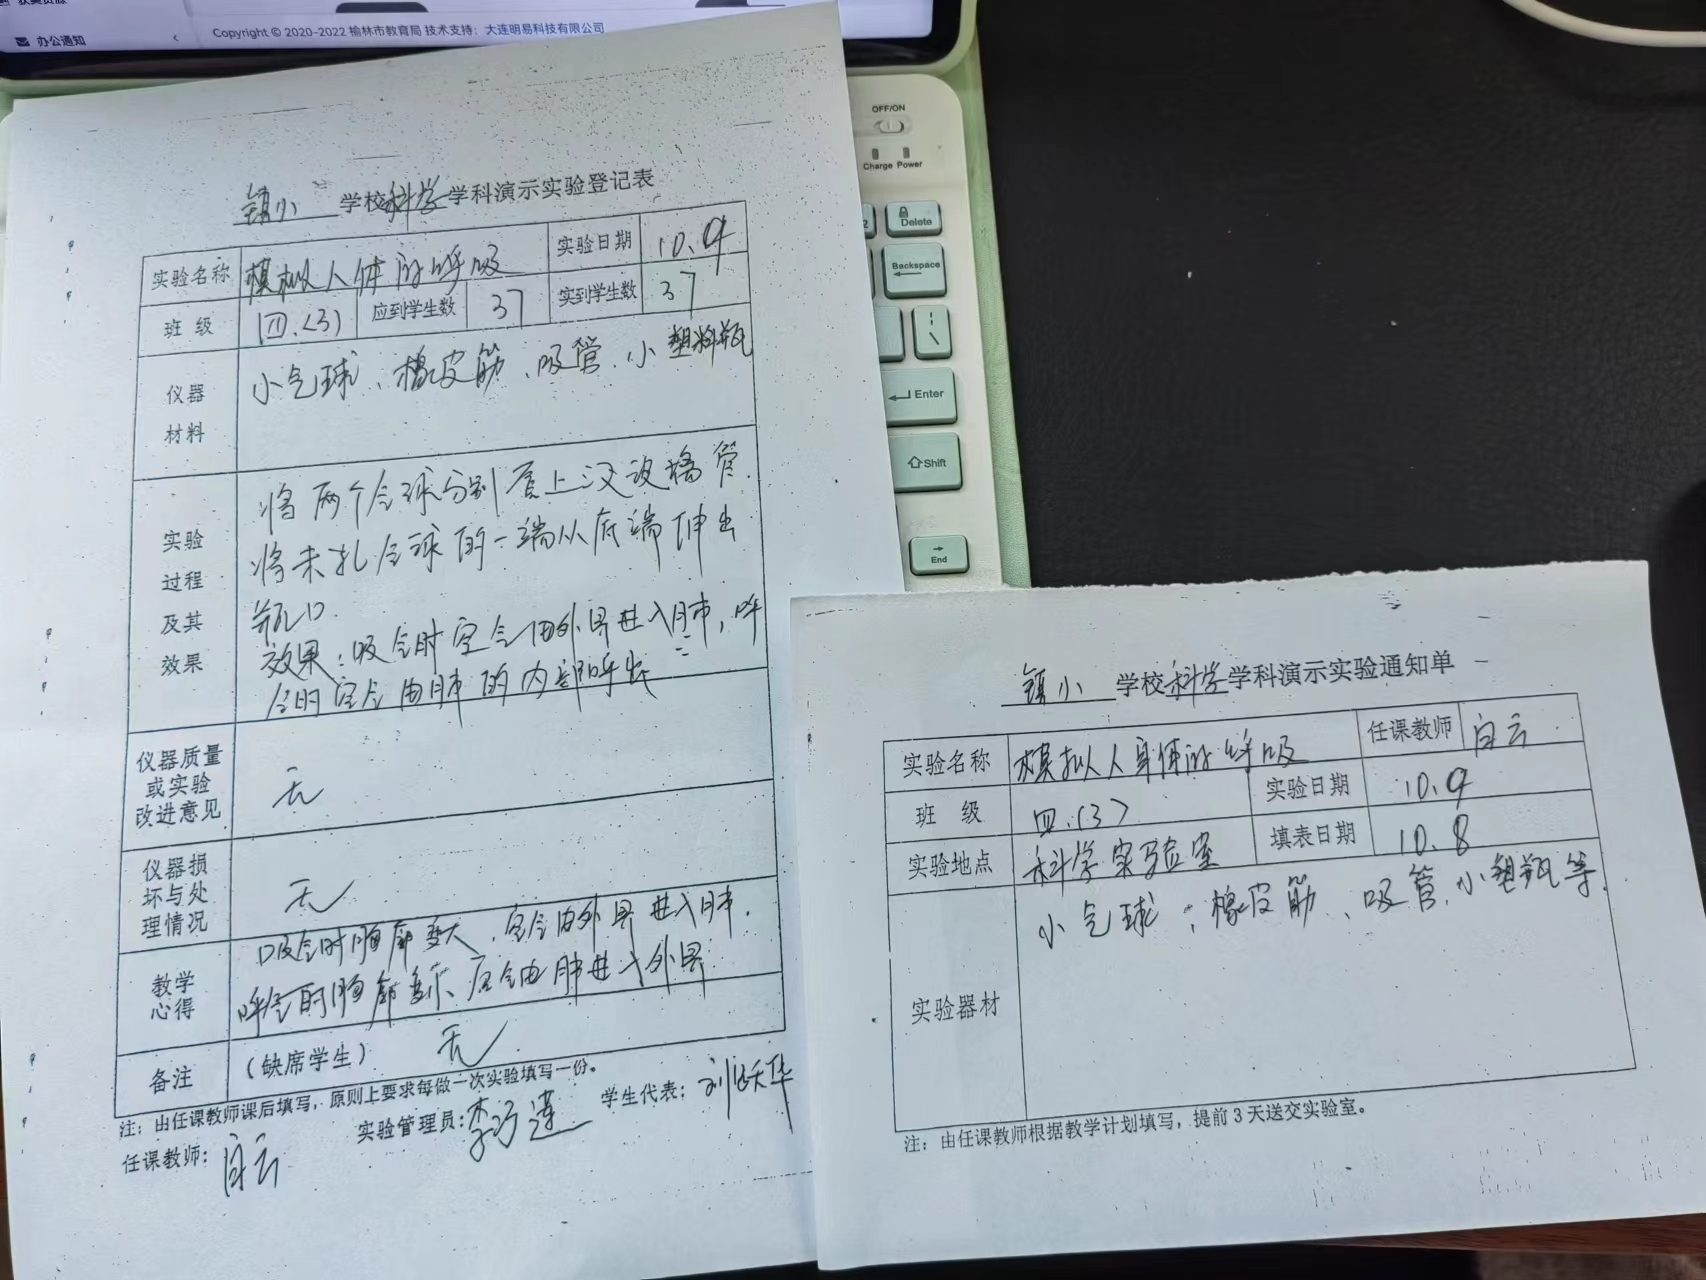 办公通知
Copyright © 2020-2022 榆林市教育局 技术支持：大连明易科技有限公司
OFF/ON
Charge Power
Delete
Backspace
Enter
Shift
End
镇小 学校科学学科演示实验登记表
实验名称 模拟人体的呼吸 实验日期 10.9
班级 四.(3) 应到学生数 37 实到学生数 37
仪器材料 小气球、橡皮筋、吸管、小塑料瓶
实验过程及其效果
将两个气球分别套上汉设橡管.
将未扎气球的一端从底端伸出
瓶口.
效果：吸气时空气由外界进入肺，呼
气时空气由肺的内部呼出
仪器质量或实验改进意见 无
仪器损坏与处理情况 无
教学心得
吸气时胸廓变大，空气由外界进入肺.
呼气时胸廓变小、空气由肺进入外界
备注 (缺席学生) 无
注：由任课教师课后填写，原则上要求每做一次实验填写一份。
任课教师：白云 实验管理员：李巧莲 学生代表：刘跃华
镇小 学校科学学科演示实验通知单
实验名称 模拟人身体的呼吸 任课教师 白云
班级 四.(3) 实验日期 10.9
实验地点 科学实验室 填表日期 10.8
实验器材 小气球、橡皮筋、吸管、小塑瓶等.
注：由任课教师根据教学计划填写，提前3天送交实验室。